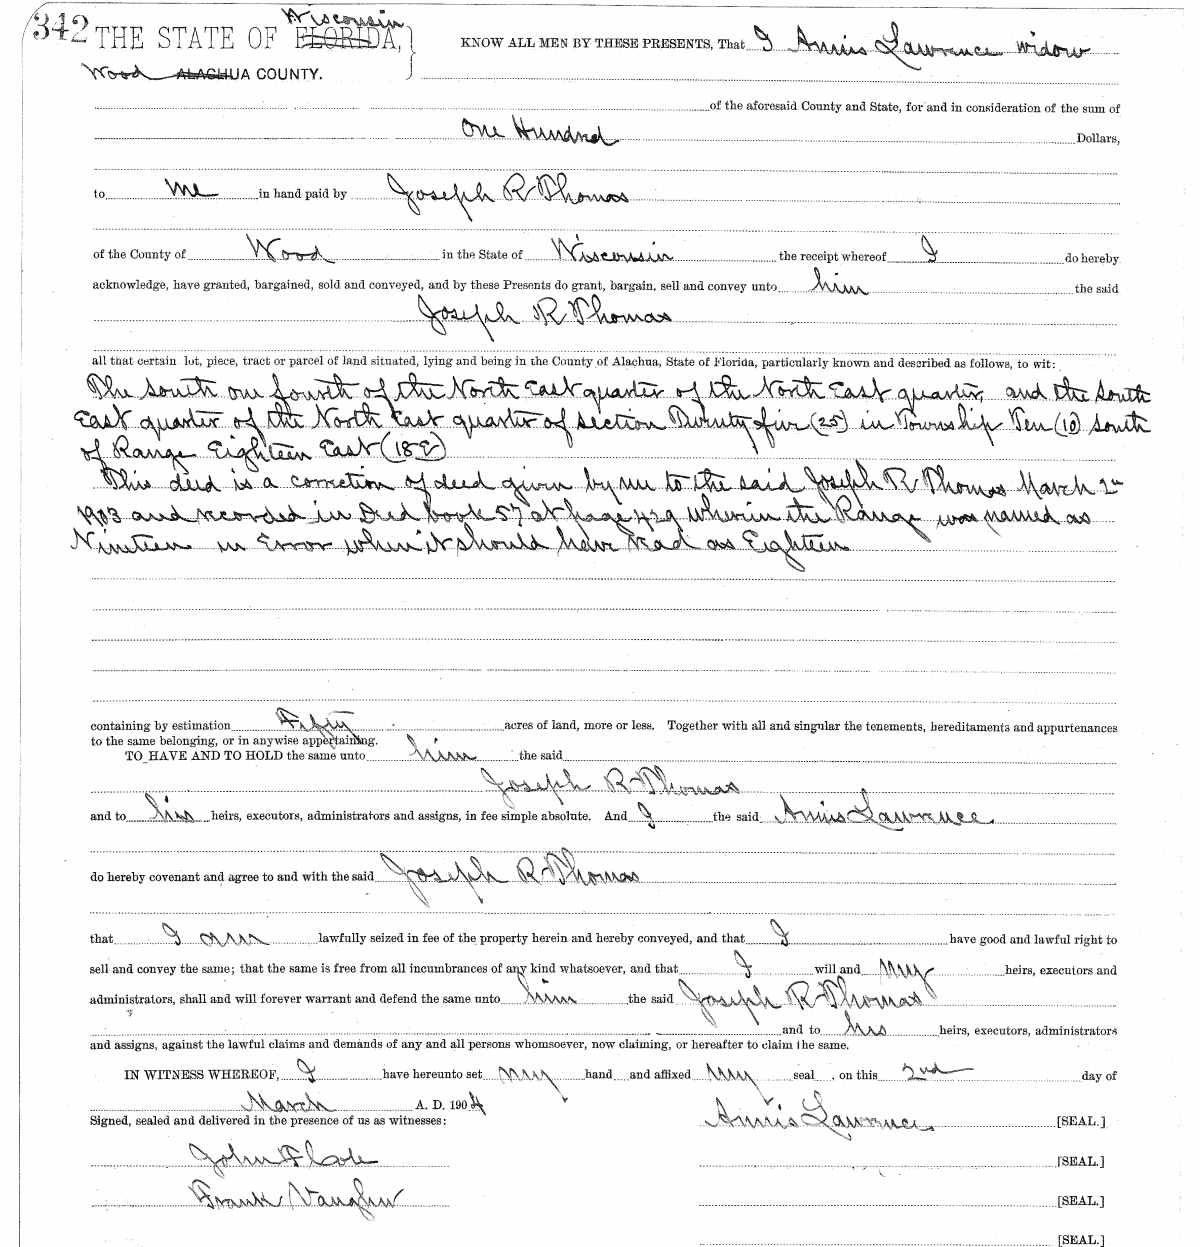 342 THE STATE OF FLORIDA, Wisconsin
Wood ALACHUA COUNTY.
KNOW ALL MEN BY THESE PRESENTS, That I Annis Lawrence widow
of the aforesaid County and State, for and in consideration of the sum of
One Hundred Dollars,
to me in hand paid by Joseph R Thomas
of the County of Wood in the State of Wisconsin the receipt whereof I do hereby
acknowledge, have granted, bargained, sold and conveyed, and by these Presents do grant, bargain, sell and convey unto him the said
Joseph R Thomas
all that certain lot, piece, tract or parcel of land situated, lying and being in the County of Alachua, State of Florida, particularly known and described as follows, to wit:
The South one fourth of the North East quarter of the North East quarter, and the South
East quarter of the North East quarter of section Twenty five (25) in Township Ten (10) South
of Range Eighteen East (18E)
This deed is a correction of deed given by me to the said Joseph R Thomas March 2nd
1903 and recorded in Deed book 57 at page 429 wherein the Range was named as
Nineteen in Error when it should have read as Eighteen
containing by estimation Fifty acres of land, more or less. Together with all and singular the tenements, hereditaments and appurtenances
to the same belonging, or in anywise appertaining.
TO HAVE AND TO HOLD the same unto him the said
Joseph R Thomas
and to his heirs, executors, administrators and assigns, in fee simple absolute. And I the said Annis Lawrence
do hereby covenant and agree to and with the said Joseph R Thomas
that I am lawfully seized in fee of the property herein and hereby conveyed, and that I have good and lawful right to
sell and convey the same; that the same is free from all incumbrances of any kind whatsoever, and that I will and my heirs, executors and
administrators, shall and will forever warrant and defend the same unto him the said Joseph R Thomas
and to his heirs, executors, administrators
and assigns, against the lawful claims and demands of any and all persons whomsoever, now claiming, or hereafter to claim the same.
IN WITNESS WHEREOF, I have hereunto set my hand and affixed my seal, on this 2nd day of
March A. D. 1904
Signed, sealed and delivered in the presence of us as witnesses:
Annis Lawrence [SEAL.]
John [SEAL.]
Frank Vaughn [SEAL.]
[SEAL.]